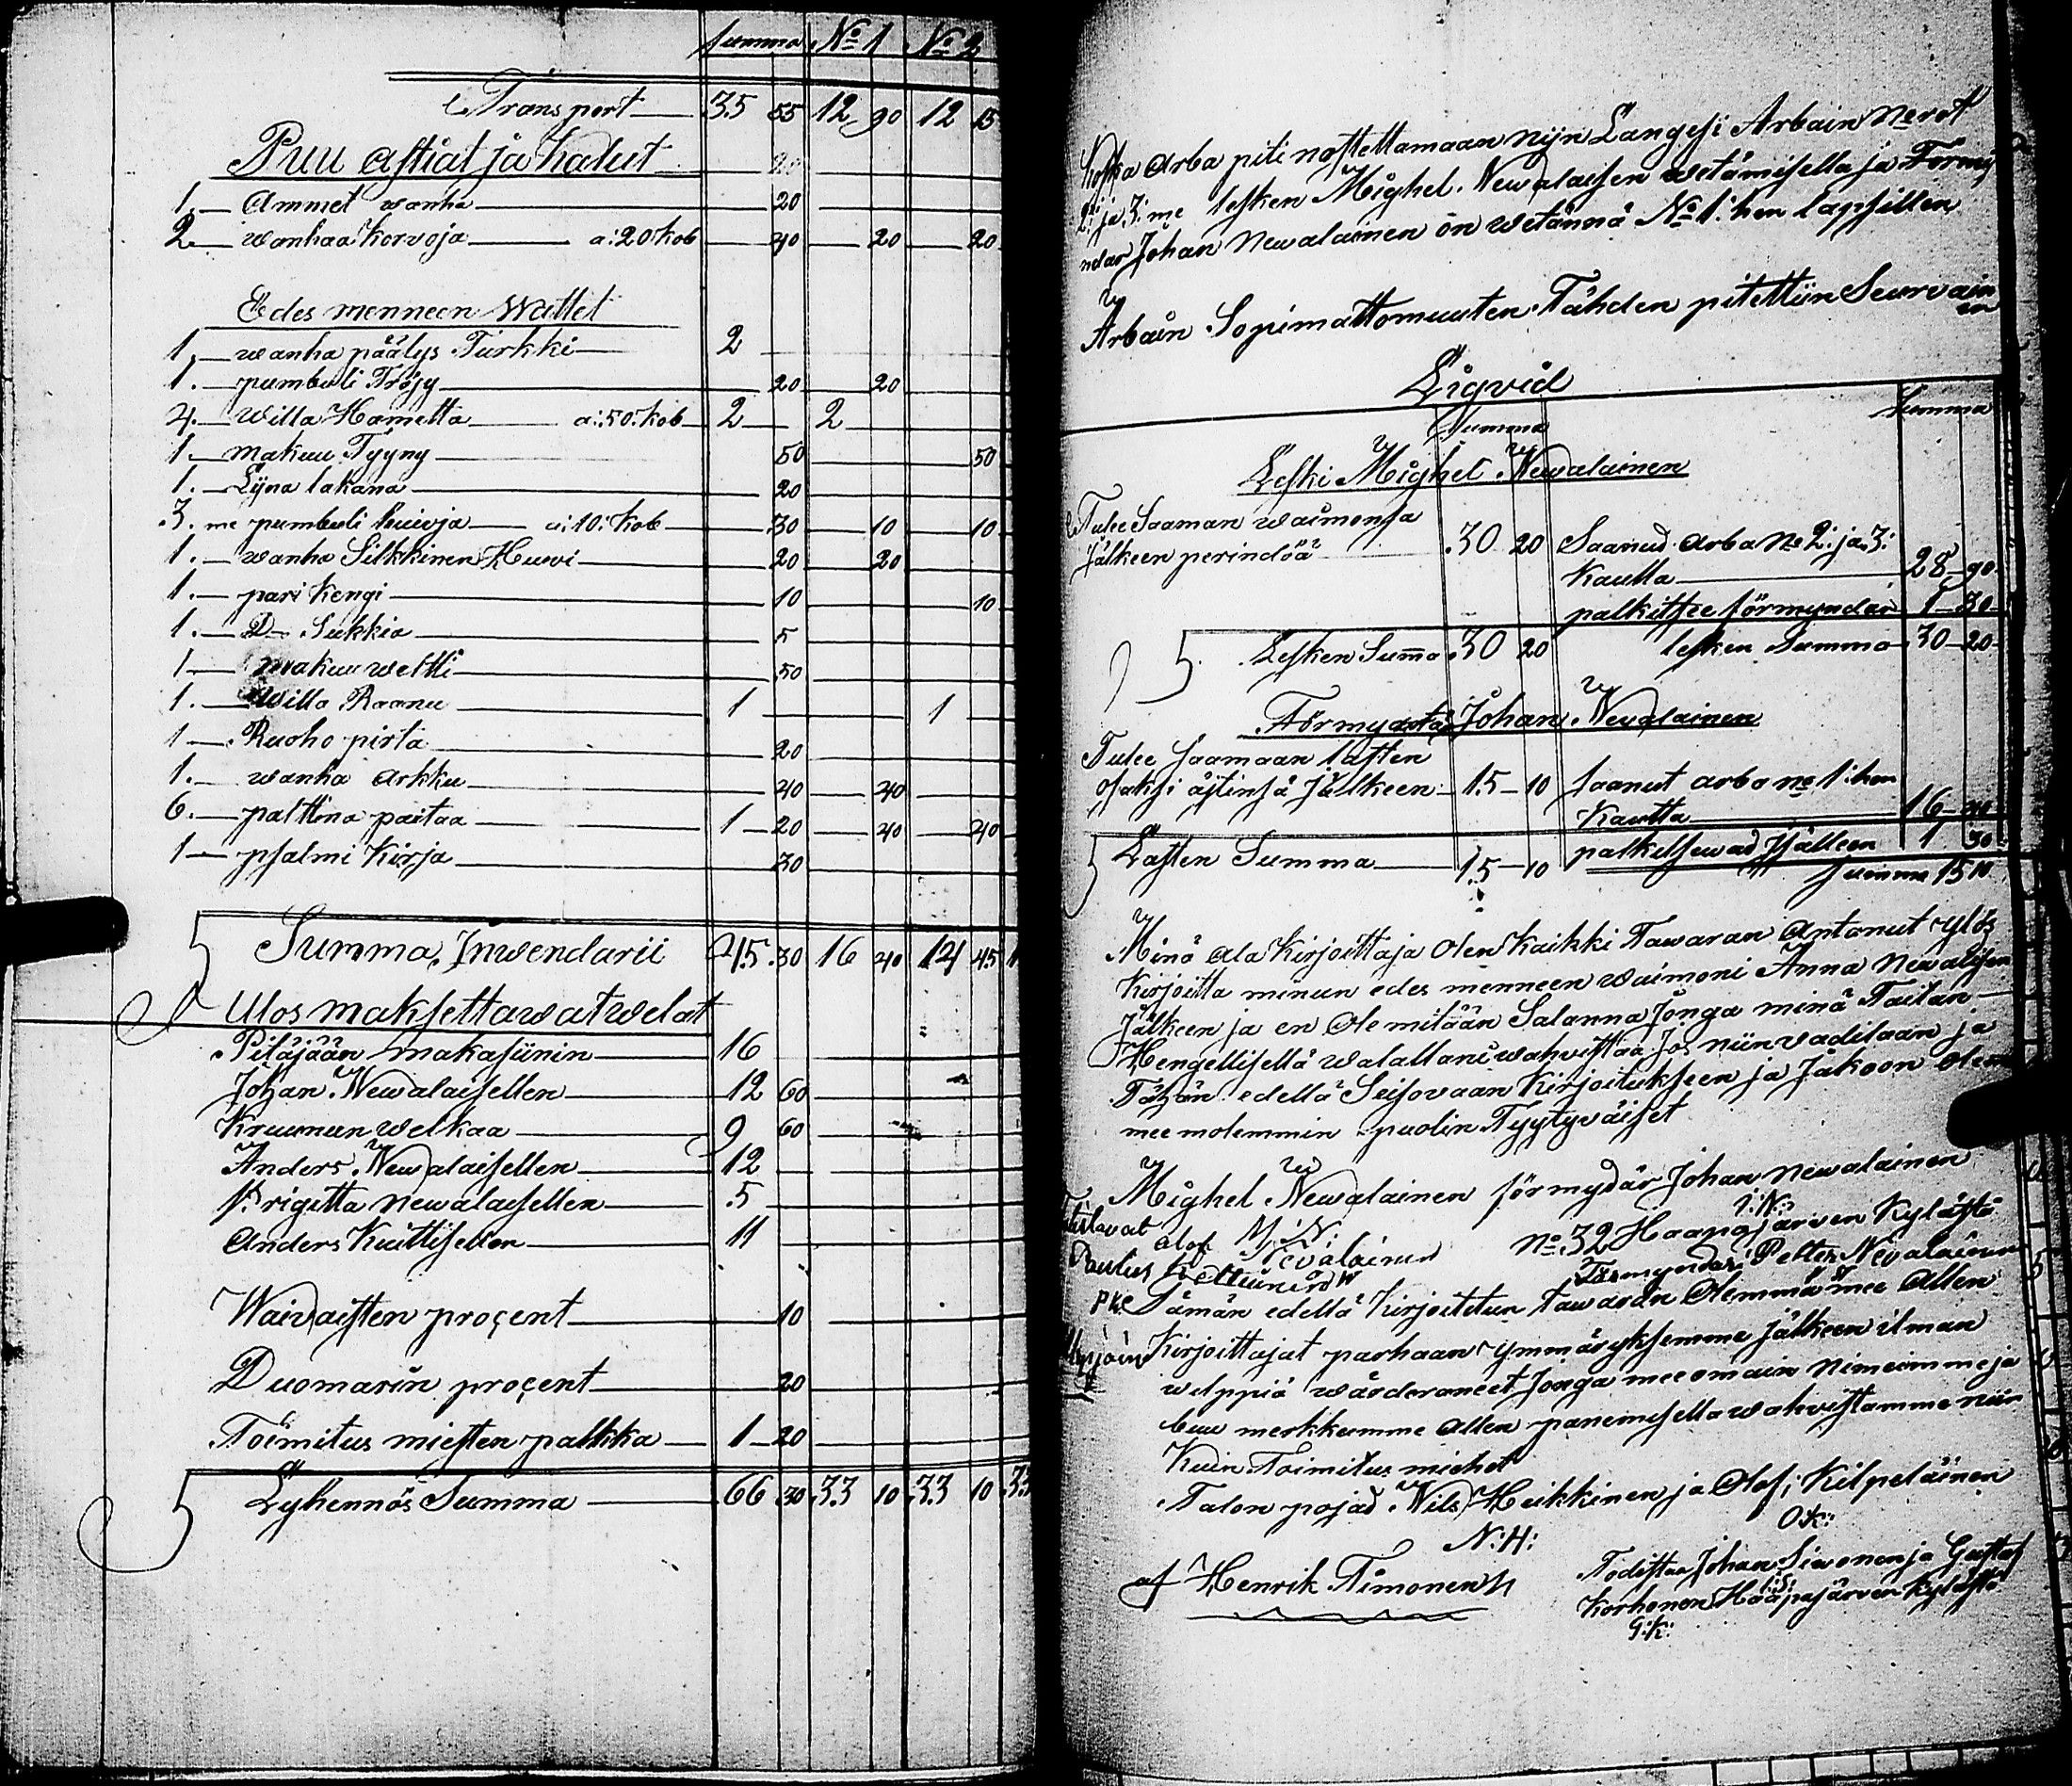 Summa No 1 No 2
Transport 35 55 12 90 12 15
Puu astiat ja Kalut
1. Ammet wanha 20
2. wanhaa Korvoja a: 20 Kob 40 20 20
Edes menneen Wattet
1. wanha päälys Turkki 2
1. pumbuli Tröjy 20 20
4. Willa Hametta a: 50: Kob 2 2
1. makuu Tyyny 50 50
1. Lijna lakana 20
3. me pumbuli huivja a: 10: Kob 30 10 10
1. wanha Silkkinen Huwi 20 20
1. pari Kengi 10 10
1. D Sukkia 5
1 makuu weltti 50
1. Willa Raanu 1 1
1 Ruoho pirta 20
1. wanha arkku 40 40
6. palttina paitaa 1 20 40 40
1 psalmi Kirja 30
Summa, Inwendarii 45 30 16 40 14 45
Ulos maksettawat welat
Pitäjään makasiinin 16
Johan Newalaisellen 12 60
Kruunun welkaa 9 60
Anders Newalaisellen 12
Prigitta newalaisellen 5
Anders Kuittisellen 11
Waivaisten proçent 10
Duomarin proçent 20
Toimitus miesten palkka 1 20
Lyhennös Summa 66 30 33 10 33 10 33
Koska arba piti nostettamaan nijn Langesi Arbain nerot
2: ja 3: me lesken Mighel Newalaisen wetämisellä ja Förmy
ndar Johan Newalainen on wetännä No 1: hen lapsillen
Arbain Sopimattomuuten Tähden pitettiin Seurvain
en
Liqvid
Summa Summa
Leski Mighel Newalainen
Tulee Saaman waimonsa
Jälkeen perindöä 30 20 Saanud arba No 2: ja 3:
Kautta 28 90
palkitsee förmyndär 1 30
Lesken Summa 30 20 lesken Summa 30 20
Förmyndär Johan Newalainen
Tulee saamaan lasten
osaksi äitinsä Jälkeen 15 10 saanut arba no 1: hen
Kautta 16 40
Lasten Summa 15 10 palkitsewad jälleen 1 30
summa 15 10
Minä ala Kirjoittaja Olen Kaikki Tawaran Antanut ylös
Kirjoitta minun edes menneen waimoni Anna Newalisen
Jälkeen ja en Ole mitään Salanna Jonga minä Taitan
Hengellisellä walallani wahvistaa Jos niin vaditaan ja
Tähän edellä Seisovaan Kirjoitukseen ja Jakoon olem
mee molemmin puolin Tyytyväiset
Mighel Newalainen förmydär Johan newalainen
M: N: I: N:
Todistavat Olof Nevalainen No 32 Haapajärven Kylästä
Paulus Kettuinen Förmyndari Petter Nevalainen
PKe Tämän edellä Kirjoitetun tawaran Olemma mee Allen
Kirjoittajat parhaan ymmäryksemme jälkeen ilman
wilppiä wärderaneet Jonga mee omain nimeimme ja
buu merkkumme allen panemisella wahvistamme niin
Kuin Toimitus miehet
Talon pojad Nils Heikkinen ja Olof Kilpeläinen
N: H: O: K:
af Henrik Timonen Todistaa Johan Siwonen ja Gustaf
Korhonen Haapajärven Kylästä
G: K: